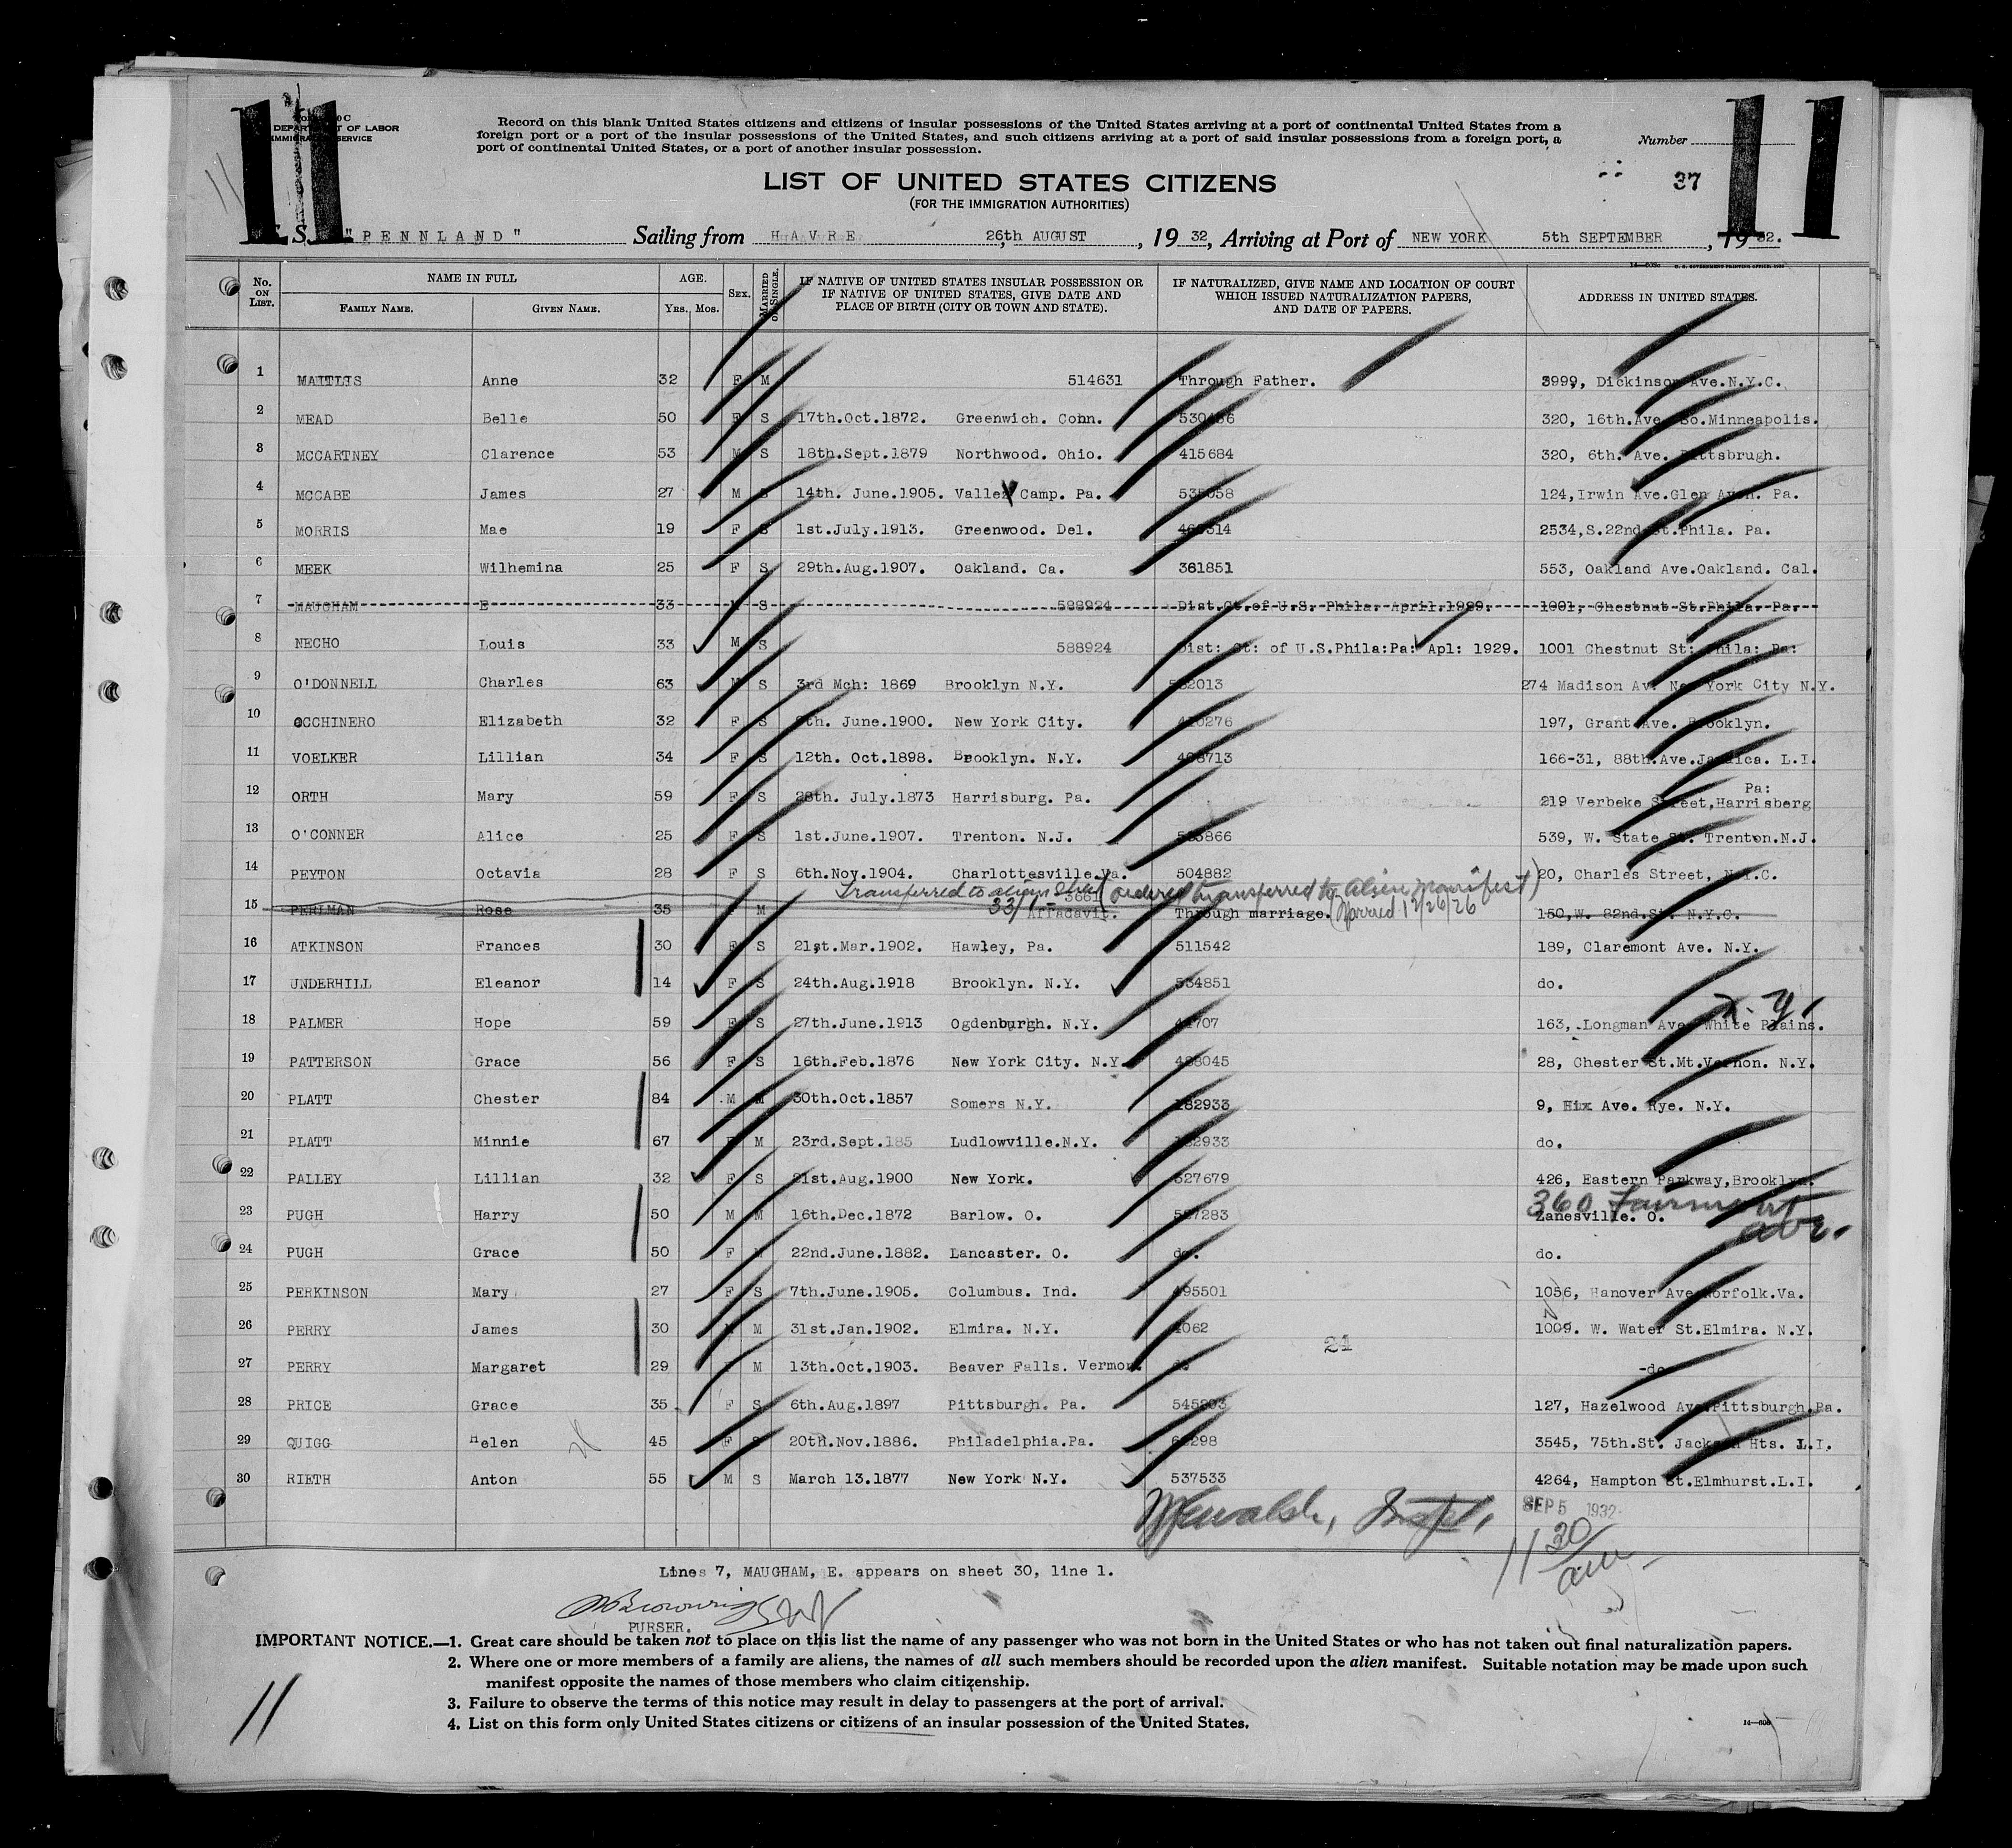 11 11
DEPARTMENT OF LABOR
IMMIGRATION SERVICE
Record on this blank United States citizens and citizens of insular possessions of the United States arriving at a port of continental United States from a
foreign port or a port of the insular possessions of the United States, and such citizens arriving at a port of said insular possessions from a foreign port, a
port of continental United States, or a port of another insular possession.
Number
11
37
LIST OF UNITED STATES CITIZENS
(FOR THE IMMIGRATION AUTHORITIES)
S. "PENNLAND" Sailing from HAVRE 26th AUGUST, 1932, Arriving at Port of NEW YORK 5th SEPTEMBER, 1932.
No. ON LIST. NAME IN FULL FAMILY NAME. GIVEN NAME. AGE. YRS. MOS. SEX. MARRIED OR SINGLE. IF NATIVE OF UNITED STATES INSULAR POSSESSION OR IF NATIVE OF UNITED STATES, GIVE DATE AND PLACE OF BIRTH (CITY OR TOWN AND STATE). IF NATURALIZED, GIVE NAME AND LOCATION OF COURT WHICH ISSUED NATURALIZATION PAPERS, AND DATE OF PAPERS. ADDRESS IN UNITED STATES.
1 MAITLIS Anne 32 F M 514631 Through Father. 3999, Dickinson Ave.N.Y.C.
2 MEAD Belle 50 F S 17th.Oct.1872. Greenwich. Conn. 320, 16th.Ave. So.Minneapolis.
3 MCCARTNEY Clarence 53 M S 18th.Sept.1879 Northwood. Ohio. 415684 320, 6th. Ave. Pittsbrugh.
4 MCCABE James 27 M S 14th. June.1905. Valley Camp. Pa. 535058 124,Irwin Ave.Glen Avon. Pa.
5 MORRIS Mae 19 F S 1st.July.1913. Greenwood. Del. 2534,S.22nd St.Phila. Pa.
6 MEEK Wilhemina 25 F S 29th.Aug.1907. Oakland. Ca. 361851 553, Oakland Ave.Oakland. Cal.
7 MAUGHAM E 33 S 588924 Dist.Ct.of U.S. Phila. April.1929. 1001, Chestnut St.Phila. Pa.
8 NECHO Louis 33 M S 588924 Dist: Ct: of U.S.Phila:Pa: Apl: 1929. 1001 Chestnut St: Phila: Pa:
9 O'DONNELL Charles 63 M S 3rd Mch: 1869 Brooklyn N.Y. 274 Madison Av. New York City N.Y.
10 OCCHINERO Elizabeth 32 F S June.1900. New York City. 410276 197, Grant Ave. Brooklyn.
11 VOELKER Lillian 34 F S 12th. Oct.1898. Brooklyn. N.Y. 166-31, 88th.Ave.Jamaica. L.I.
12 ORTH Mary 59 F S 28th. July.1873 Harrisburg. Pa. 219 Verbeke Street,Harrisberg Pa:
13 O'CONNER Alice 25 F S 1st.June.1907. Trenton. N.J. 539, W. State St. Trenton.N.J.
14 PEYTON Octavia 28 F S 6th.Nov.1904. Charlottesville.Va. 504882 20, Charles Street, N.Y.C.
Transferred to aliens sheet (ordered transferred to Alien manifest)
15 PERLMAN Rose 35 F M 33/1 Affadavit. Through marriage. (Married 12/26/26 150,W. 82nd.St. N.Y.C.
16 ATKINSON Frances 30 F S 21st.Mar.1902. Hawley, Pa. 511542 189, Claremont Ave. N.Y.
17 UNDERHILL Eleanor 14 F S 24th.Aug.1918 Brooklyn. N.Y. 534851 do.
18 PALMER Hope 59 F S 27th.June.1913 Ogdenburgh. N.Y. 163, Longman Ave. White Plains. N.Y.
19 PATTERSON Grace 56 F S 16th.Feb.1876 New York City. N.Y. 28, Chester St.Mt.Vernon. N.Y.
20 PLATT Chester 84 M M 30th.Oct.1857 Somers N.Y. 182933 9, Hix Ave. Rye. N.Y.
21 PLATT Minnie 67 F M 23rd.Sept.185 Ludlowville.N.Y. 182933 do.
22 PALLEY Lillian 32 F S 21st.Aug.1900 New York. 527679 426, Eastern Parkway,Brooklyn.
360 Fairmount Ave.
23 PUGH Harry 50 M M 16th.Dec.1872 Barlow. O. 527283 Zanesville. O.
24 PUGH Grace 50 F M 22nd.June.1882. Lancaster. O. do. do.
25 PERKINSON Mary 27 F S 7th.June.1905. Columbus. Ind. 495501 1056, Hanover Ave.Norfolk.Va.
26 PERRY James 30 M M 31st.Jan.1902. Elmira. N.Y. 1009. W. Water St.Elmira. N.Y.
24
27 PERRY Margaret 29 F M 13th.Oct.1903. Beaver Falls. Vermon. -do
28 PRICE Grace 35 F S 6th.Aug.1897 Pittsburgh. Pa. 127, Hazelwood Ave.Pittsburgh.Pa.
29 QUIGG Helen 45 F S 20th.Nov.1886. Philadelphia.Pa. 3545, 75th.St. Jackson Hts. L.I.
30 RIETH Anton 55 M S March 13.1877 New York N.Y. 537533 4264, Hampton St.Elmhurst.L.I.
SEP 5 1932
11 30 am
Lines 7, MAUGHAM, E. appears on sheet 30, line 1.
PURSER.
IMPORTANT NOTICE.—1. Great care should be taken not to place on this list the name of any passenger who was not born in the United States or who has not taken out final naturalization papers.
2. Where one or more members of a family are aliens, the names of all such members should be recorded upon the alien manifest. Suitable notation may be made upon such
manifest opposite the names of those members who claim citizenship.
3. Failure to observe the terms of this notice may result in delay to passengers at the port of arrival.
4. List on this form only United States citizens or citizens of an insular possession of the United States.
11